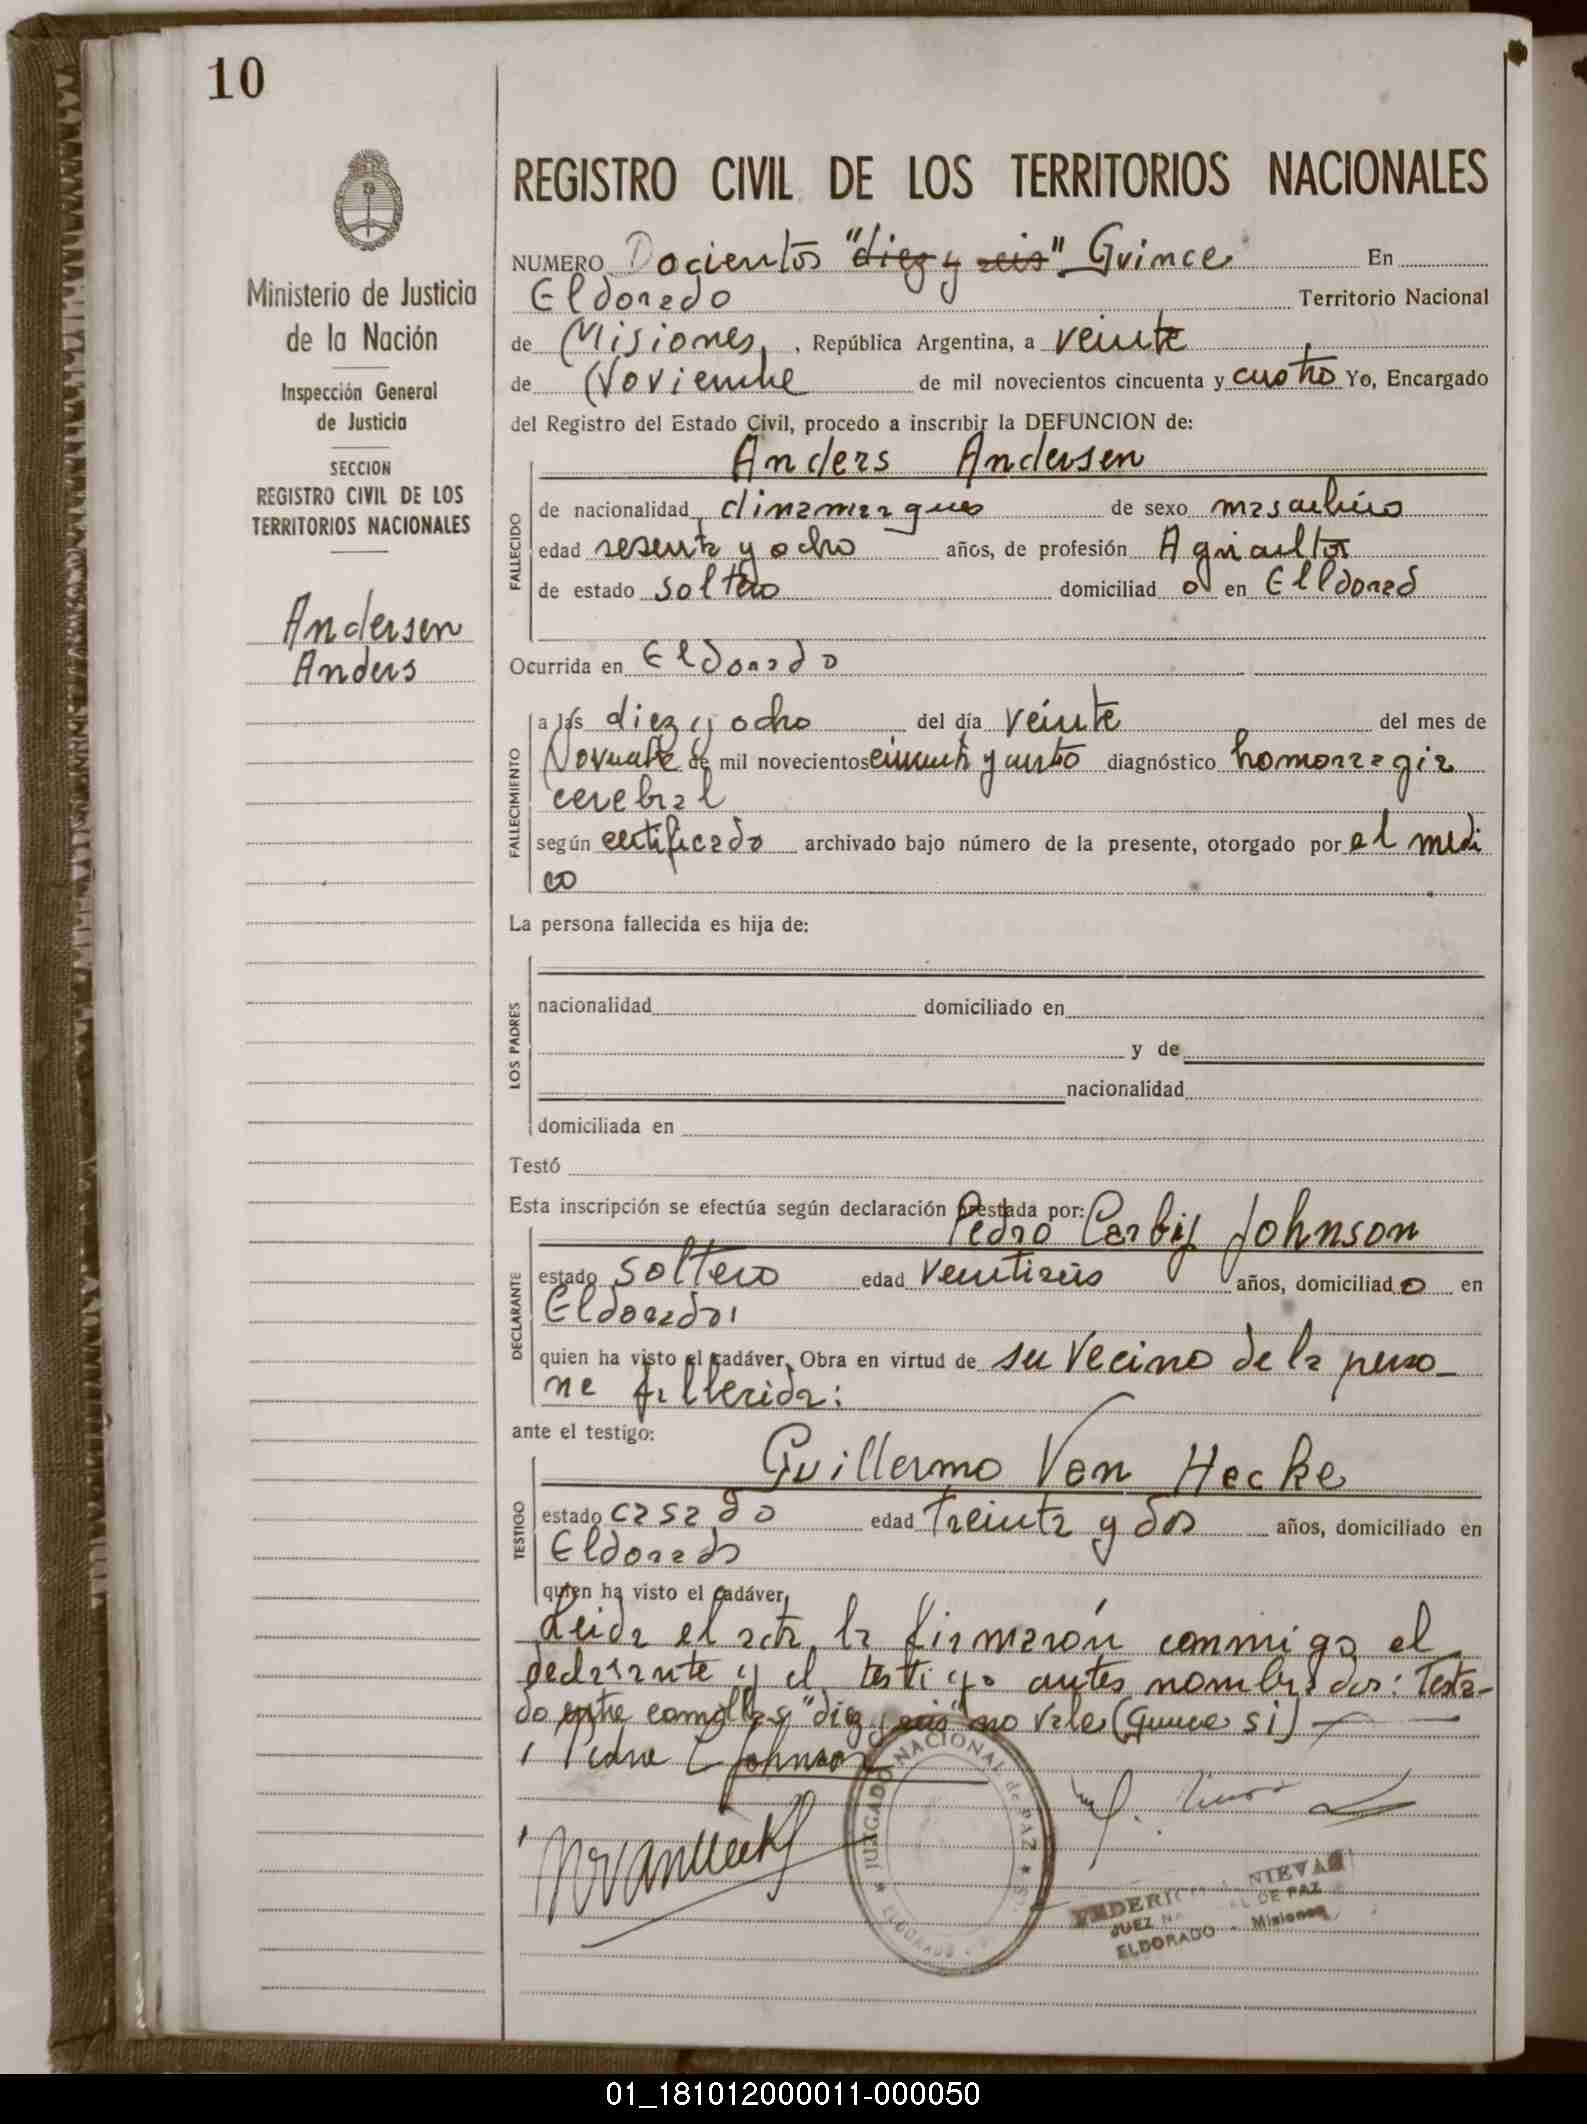 10
Ministerio de Justicia
de la Nación
Inspección General
de Justicia
SECCION
REGISTRO CIVIL DE LOS
TERRITORIOS NACIONALES
Andersen
Anders
REGISTRO CIVIL DE LOS TERRITORIOS NACIONALES
NUMERO Docientos "diez y seis" Quince En
Eldorado Territorio Nacional
de Misiones, República Argentina, a veinte
de Noviembre de mil novecientos cincuenta y cuatro Yo, Encargado
del Registro del Estado Civil, procedo a inscribir la DEFUNCION de:
Anders Andersen
FALLECIDO
de nacionalidad dinamarques de sexo masculino
edad sesenta y ocho años, de profesión Agricultor
de estado soltero domiciliad o en Elldorado
Ocurrida en Eldorado
FALLECIMIENTO
a las diez y ocho del día veinte del mes de
Noviembre de mil novecientos cincuenta y cuatro diagnóstico homorragia
cerebral
según certificado archivado bajo número de la presente, otorgado por el medi
co
La persona fallecida es hija de:
LOS PADRES
nacionalidad domiciliado en
y de
nacionalidad
domiciliada en
Testó
Esta inscripción se efectúa según declaración prestada por:
Pedro Johnson
DECLARANTE
estado soltero edad años, domiciliad o en
Eldorado
quien ha visto el cadáver, Obra en virtud de su vecino de la perso-
na fallecida:
ante el testigo:
Guillermo Van Hecke
TESTIGO
estado casado edad treinta y dos años, domiciliado en
Eldorado
quien ha visto el cadáver,
Leida el acta, la firmarón conmigo el
declarante y el testigo antes nombrados: Testa-
do entre comillas "diez y seis" no vale (Quince si)
Pedro C Johnson
JUZGADO NACIONAL de PAZ
ELDORADO
NIEVAS
JUEZ DE PAZ
ELDORADO - Misiones
01_181012000011-000050